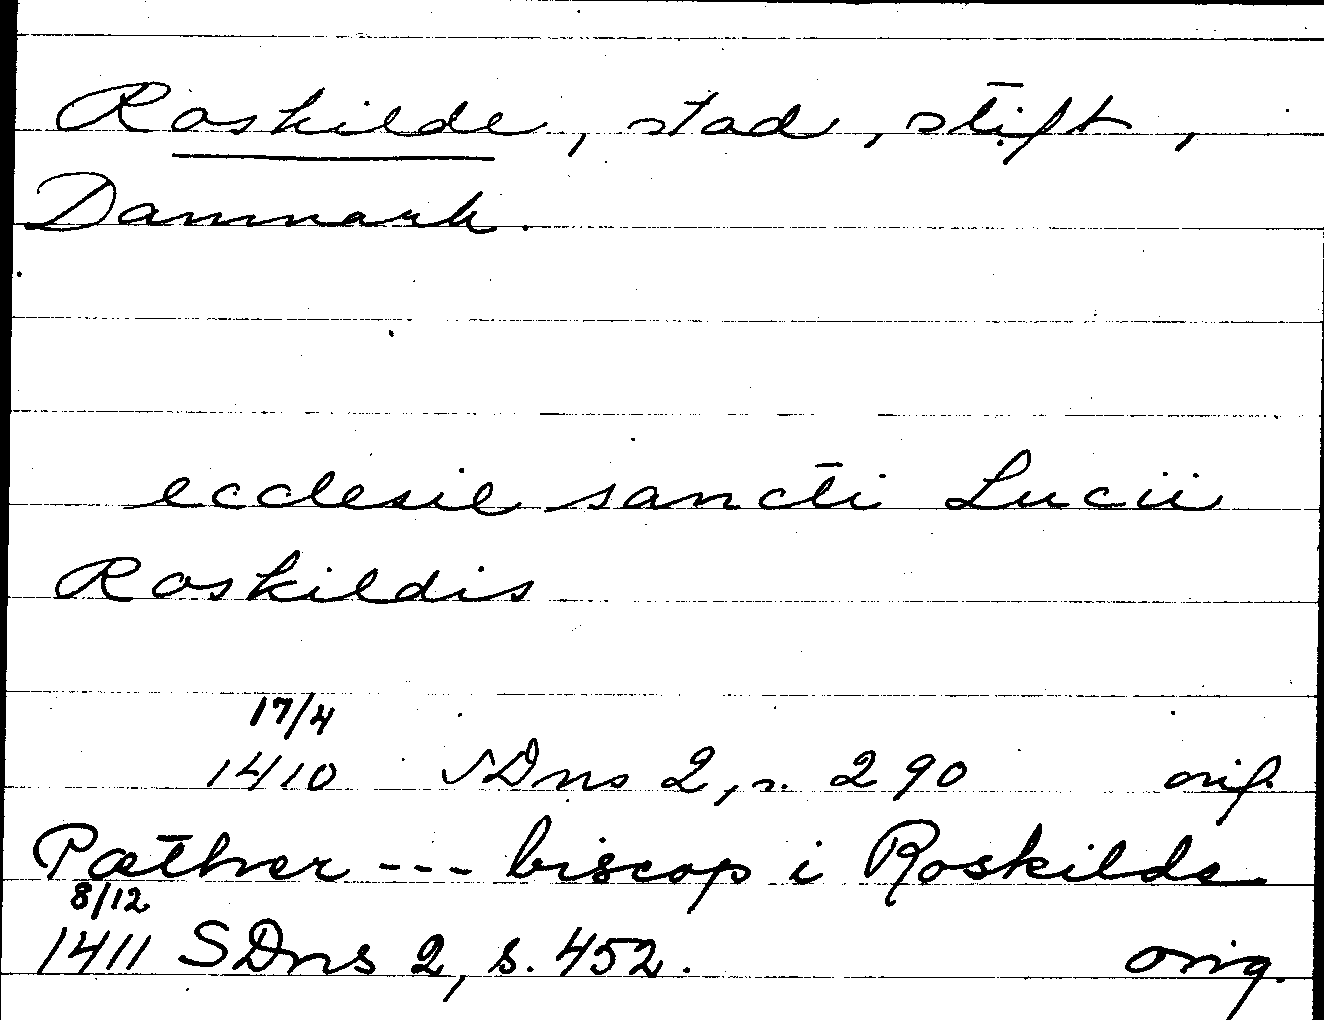 Roskilde, stad, stift,
Danmark.
ecclesie sancti Lucii
Roskildis
17/4
1410 SDns 2, s. 290 orig.
Pæther --- biscop i Roskilde
8/12
1411 SDns 2, s. 452. orig.